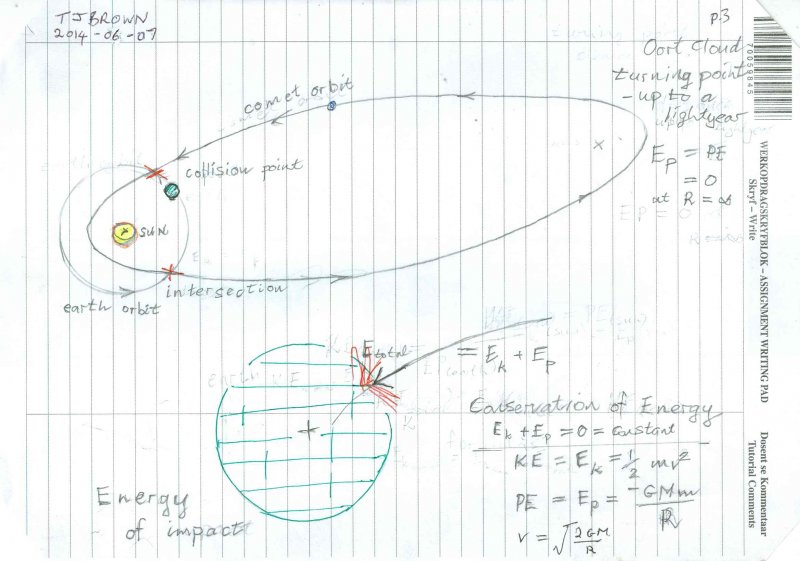 TJBROWN
2014-06-07
p.3
Oort Cloud
turning point
- up to a
lightyear
E_p = PE
= 0
at R = ∞
comet orbit
collision point
SUN
earth orbit
intersection
E_total = E_k + E_p
Conservation of Energy
E_k + E_p = 0 = constant
KE = E_k = 1/2 mv²
PE = E_p = -GMm/R
v = √(2GM/R)
Energy
of impact
70059845
WERKOPDRAGSKRYFBLOK – ASSIGNMENT WRITING PAD
Skryf – Write
Dosent se Kommentaar
Tutorial Comments